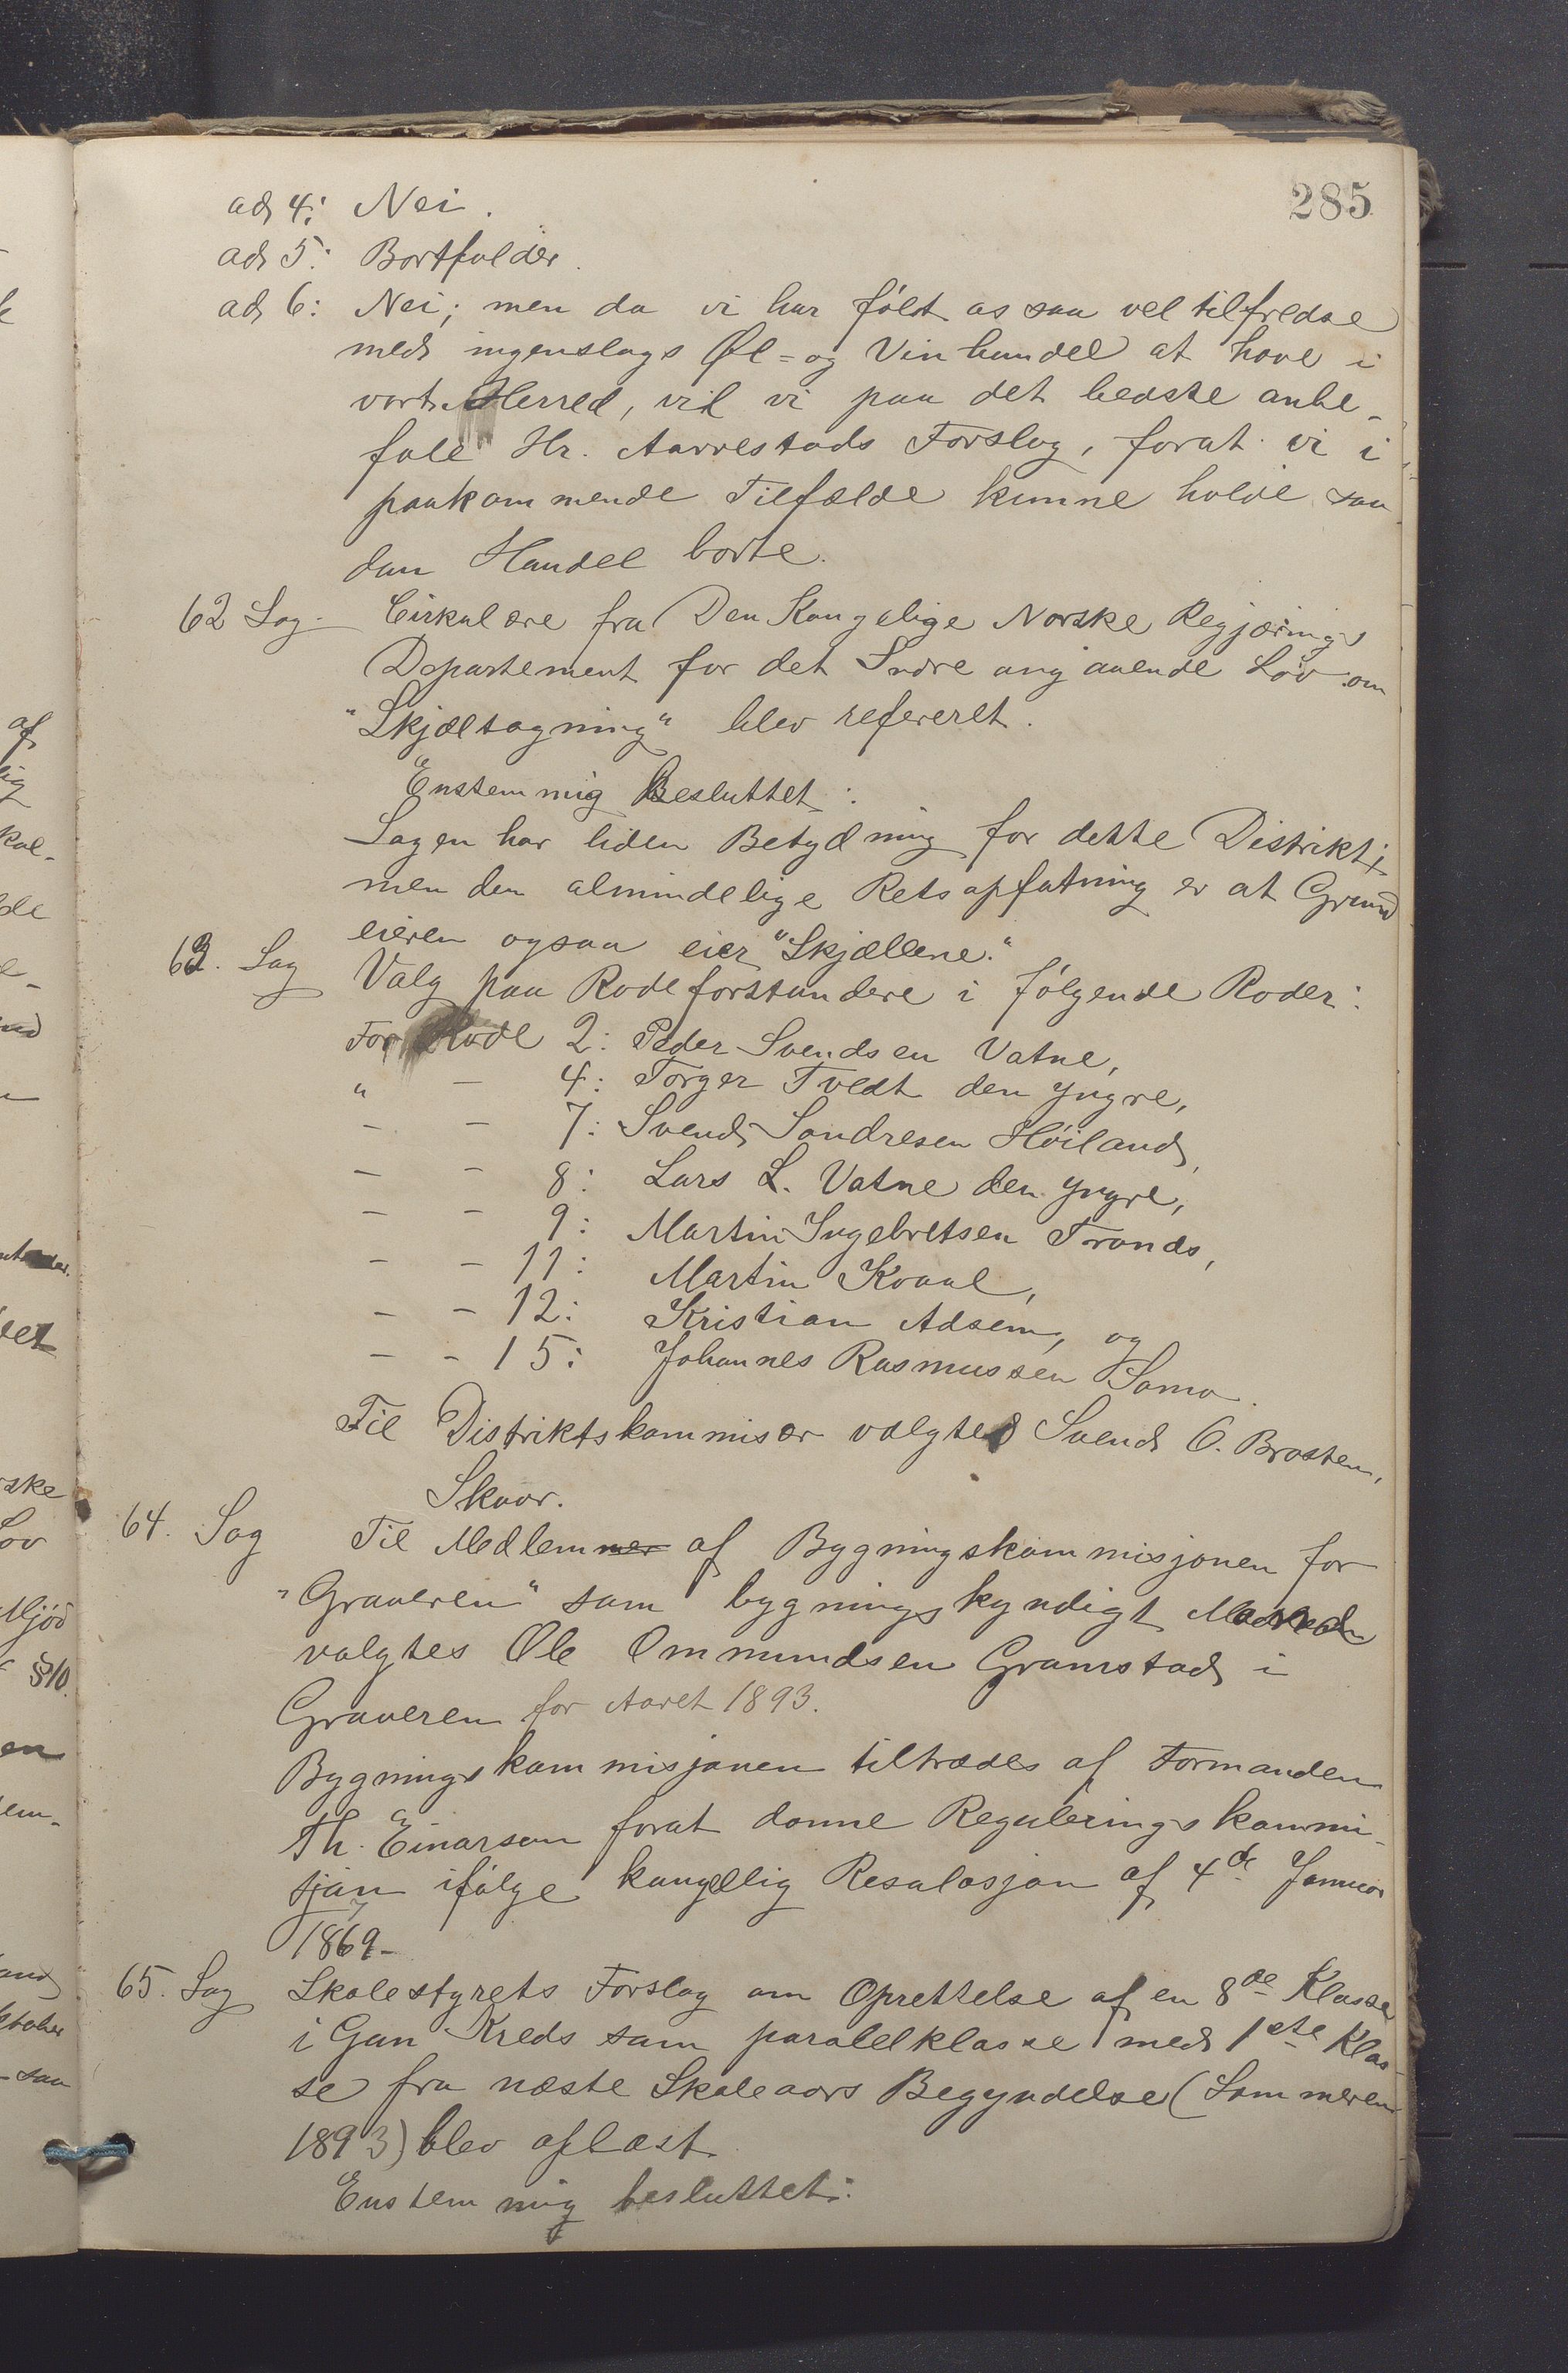 285
ad 4: Nei.
ad 5: Bortfalder.
ad 6: Nei; men da vi har følt os saa vel tilfredse
med ingenslags Øl- og Vinhandel at have i
vort Herred, vil vi paa det bedste anbe-
fale Hr. Aarrestads Forslag, forat vi i
paakommende Tilfælde kunne holde saa
dan Handel borte.
62 Sag. Cirkulære fra Den Kongelige Norske Regjærings
Departement for det Indre angaaende Lov om
"Skjæltagning" blev refereret.
Enstemmig Besluttet:
Sagen har liden Betydning for dette Distrikt;
men den almindelige Retsopfatning er at Grund
eieren ogsaa eier "Skjællene."
63. Sag Valg paa Rodeforstandere i følgende Roder:
For Rode 2: Peder Svendsen Vatne,
" — 4: Torger Tvedt den yngre,
— — 7: Svend Sandresen Høiland,
— — 8: Lars L. Vatne den yngre,
— — 9: Martin Ingebretsen Tronds,
— — 11: Martin Kvaal,
— — 12: Kristian Adsem, og
— — 15: Johannes Rasmussen Soma.
Til Distriktskommisær valgtes Svend O. Brasten,
Skaar.
64. Sag Til Medlemmer af Bygningskommisjonen for
"Graveren" som bygningskyndigt
valgtes Ole Ommundsen Gramstad i
Graveren for Aaret 1893.
Bygningskommisjonen tiltrædes af Formanden
Th. Einarsen forat danne Regulerings kommi-
sjon ifølge kongellig Resolosjon af 4de Januar
1869-
65. Sag Skolestyrets Forslag om Oprettelse af en 8de Klasse
i Gan Kreds som paralelklasse med 1ste Klas-
se fra næste Skoleaars Begyndelse (Sommeren
1893) blev oplæst.
Enstemmig besluttet: